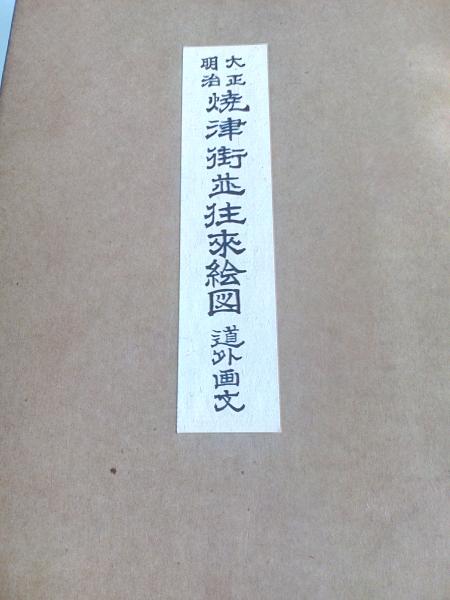 大正
明治
焼津街並往来絵図
道外画文